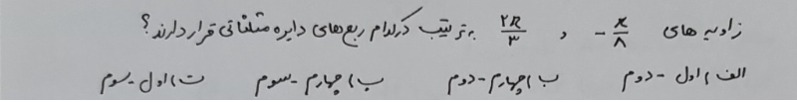 زاویه های -π/۸ و ۲π/۳ به ترتیب در کدام ربع‌های دایره مثلثاتی قرار دارند؟
الف) اول - دوم ب) چهارم - دوم پ) چهارم - سوم ت) اول - سوم